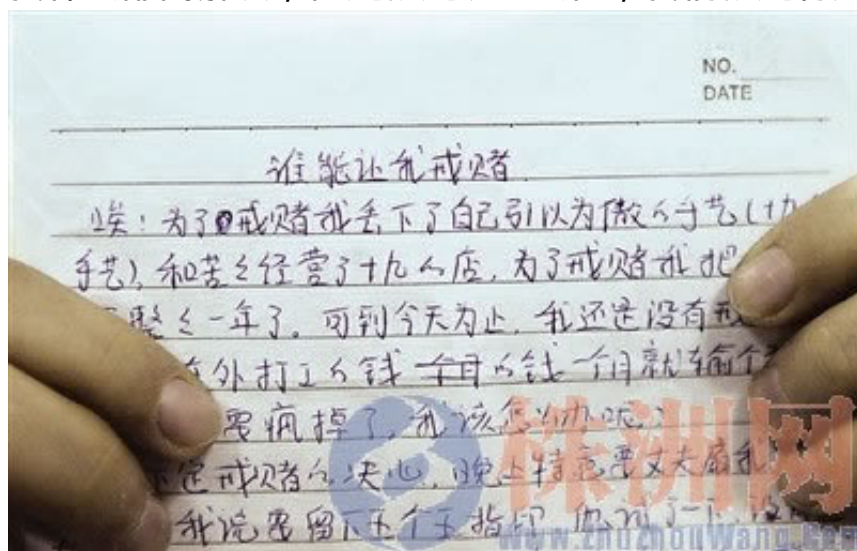 NO.
DATE
谁能让我戒赌
唉!为了戒赌我丢下了自己引以为傲的手艺(十九
手艺),和苦々经营了十九的店,为了戒赌我把
整々一年了。可到今天为止,我还是没有戒
在外打工的钱 一个月的钱一个月就输个
要疯掉了,我该怎么办呢?
下定戒赌的决心,晚上特意要丈夫扇我
我说要留下五个手指印
株洲网
www.zhuzhouwang.com